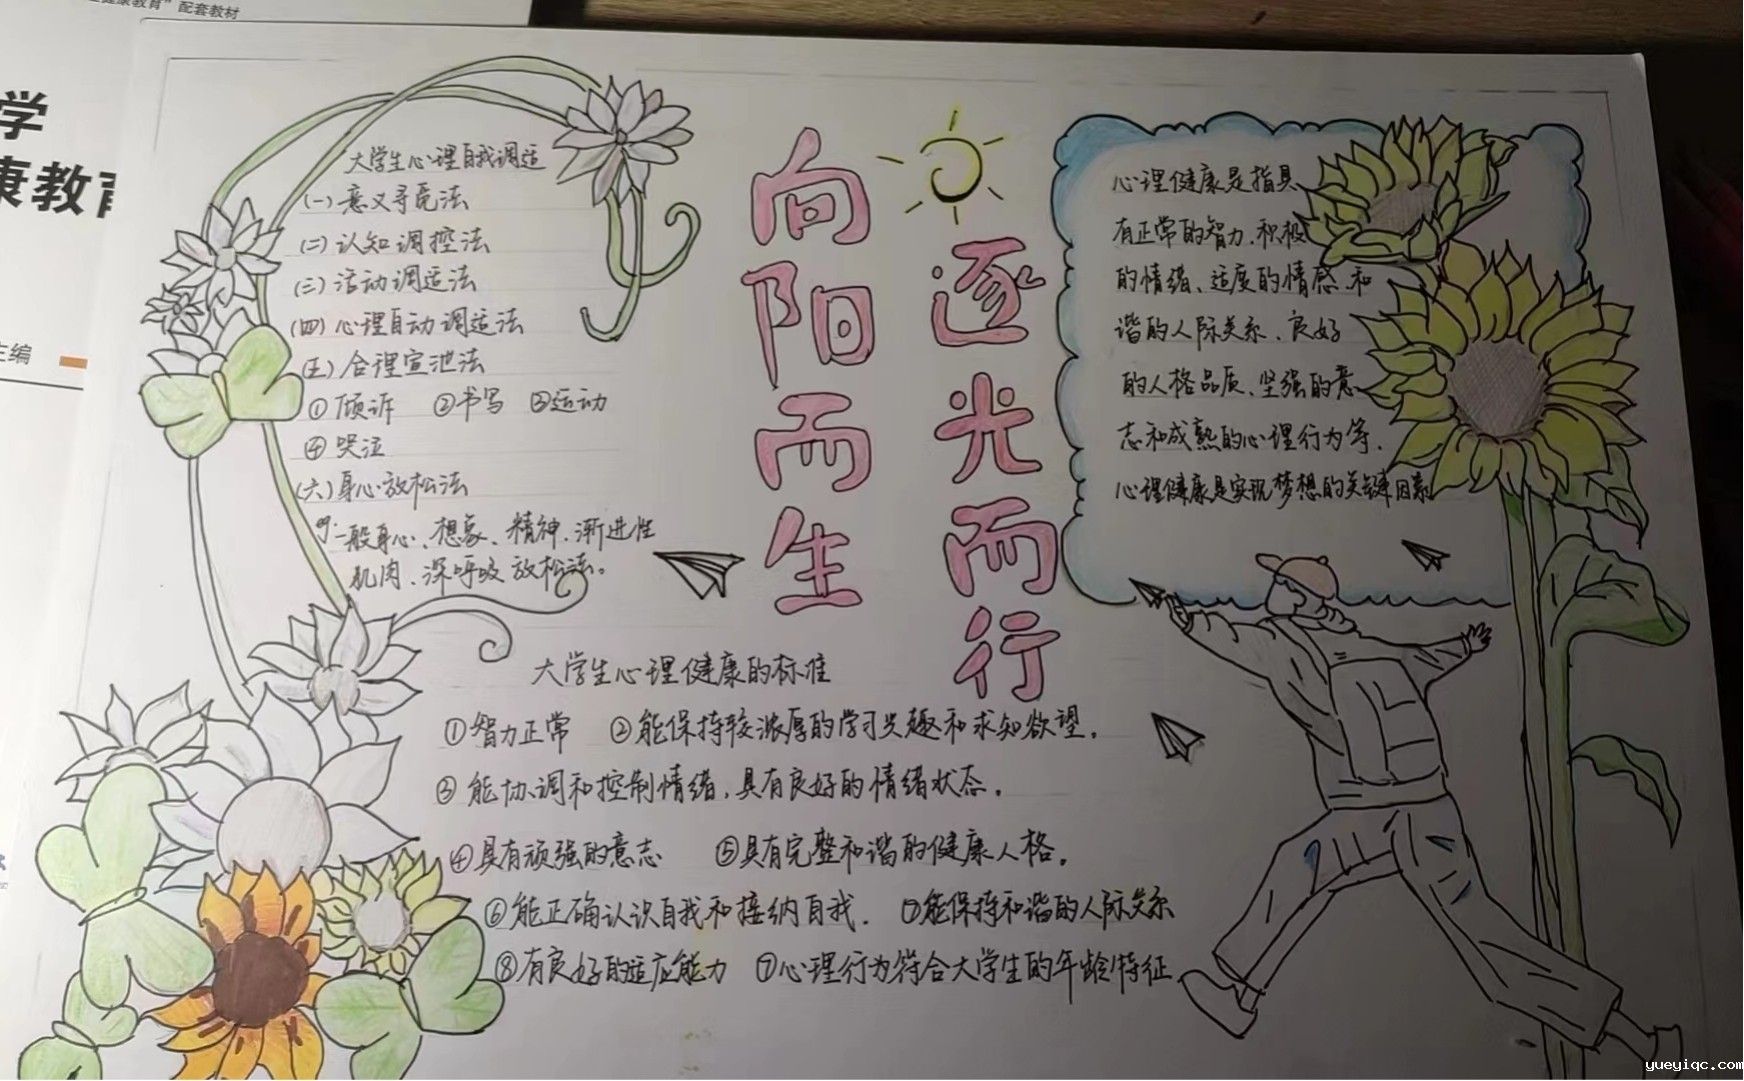 康教育”配套教材
学
康教育
主编
大学生心理自我调适
(一)意义寻觅法
(二)认知调控法
(三)活动调适法
(四)心理自动调适法
(五)合理宣泄法
①倾诉 ②书写 ③运动
④哭泣
(六)身心放松法
一般身心、想象、精神、渐进性
肌肉、深呼吸放松法。
向阳而生
逐光而行
心理健康是指具
有正常的智力、积极
的情绪、适度的情感、和
谐的人际关系、良好
的人格品质、坚强的意
志和成熟的心理行为等.
心理健康是实现梦想的关键因素
大学生心理健康的标准
①智力正常 ②能保持较浓厚的学习兴趣和求知欲望。
③能协调和控制情绪,具有良好的情绪状态。
④具有顽强的意志 ⑤具有完整和谐的健康人格。
⑥能正确认识自我和接纳自我. ⑦能保持和谐的人际关系
⑧有良好的适应能力 ⑦心理行为符合大学生的年龄特征
yueyiqc.com